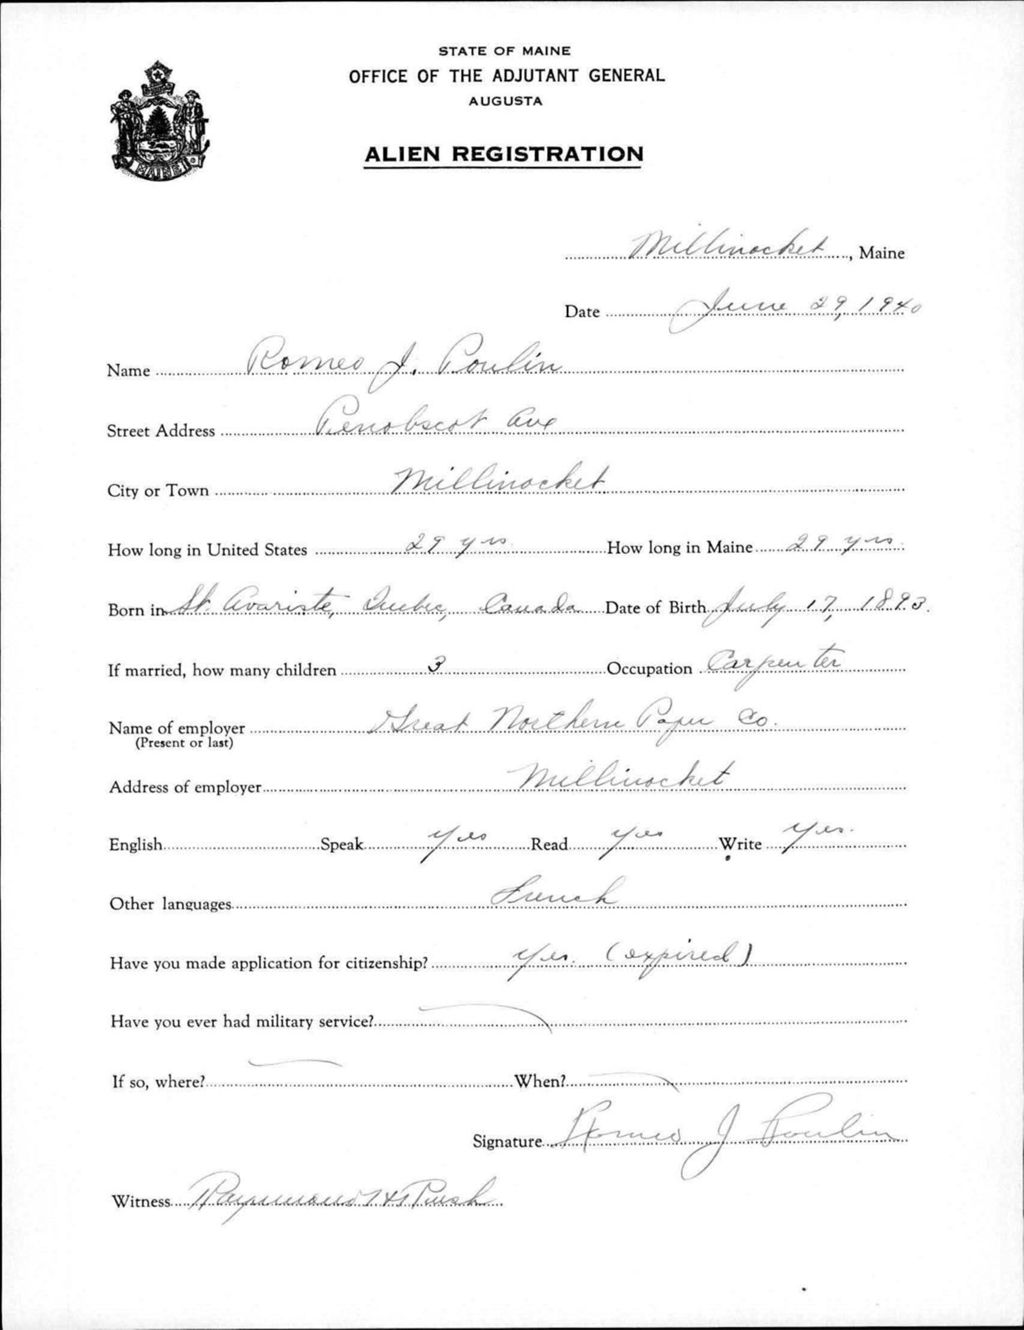 STATE OF MAINE
OFFICE OF THE ADJUTANT GENERAL
AUGUSTA
ALIEN REGISTRATION
MAINE
Millinocket, Maine
Date June 29, 1940
Name Romeo J. Poulin
Street Address Penobscot Ave
City or Town Millinocket
How long in United States 29 yrs How long in Maine 29 yrs.
Born in St Avariste, Quebec, Canada Date of Birth July 17, 1893.
If married, how many children 3 Occupation Carpenter
Name of employer Great Northern Paper Co.
(Present or last)
Address of employer Millinocket
English Speak yes Read yes Write yes.
Other languages French
Have you made application for citizenship? yes. (expired)
Have you ever had military service?
If so, where? When?
Signature Romeo J Poulin
Witness Raymond H